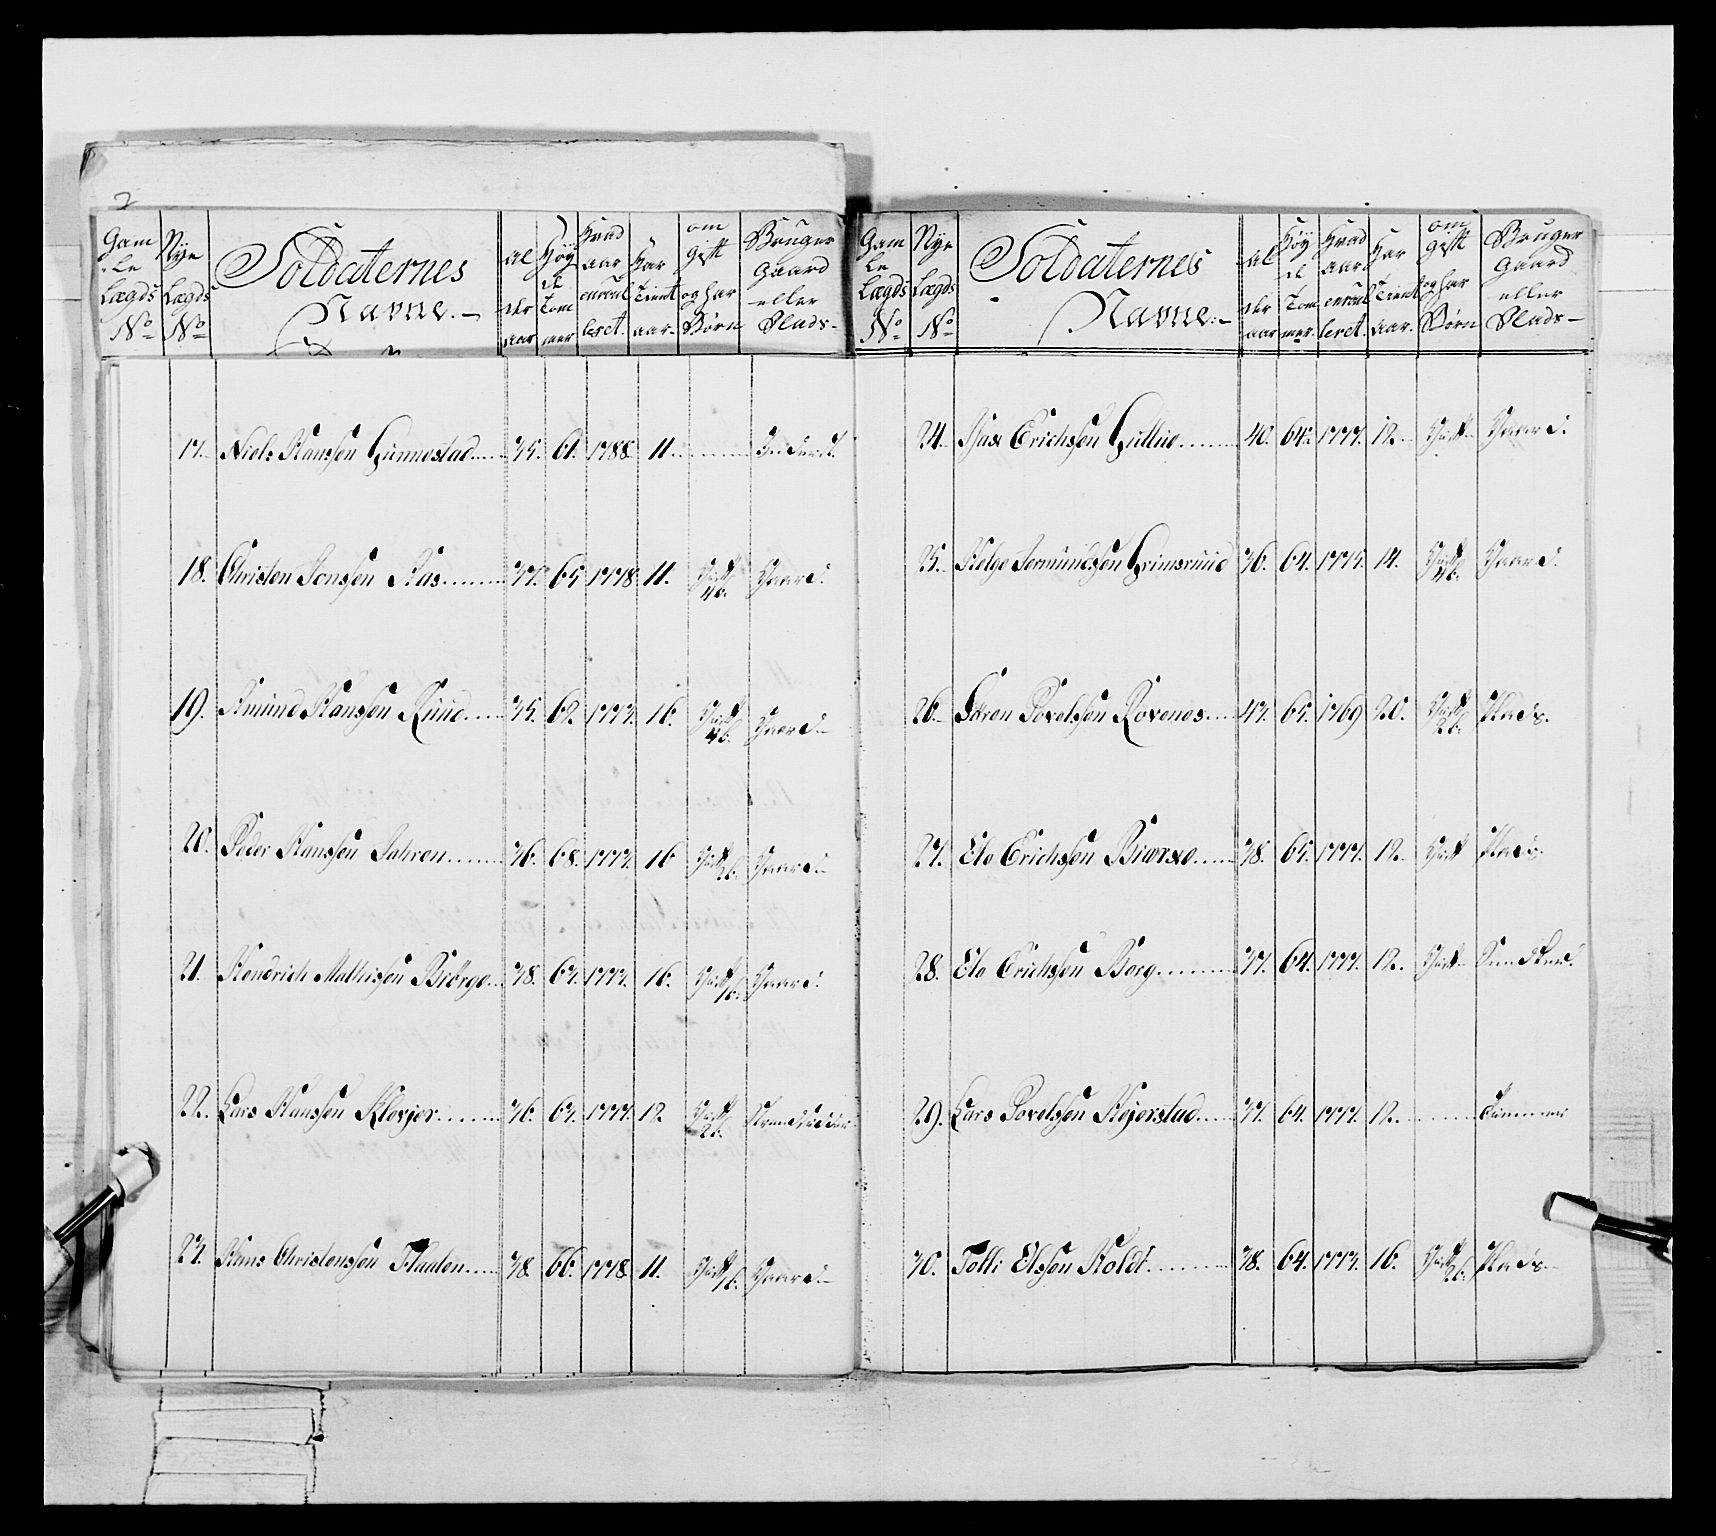 2
Gam le Lægds No Nye Lægds No Soldaternes Navne. Al der aar Høy de Tom mer Hvad aar enroul leret. Har Tient aar. om gift og har Børn Bruger Gaard eller Plads
17. Niels Hanssen Gunnestad 35. 61. 1788 11. Inderst.
18. Christen Jonssen Aas 37. 65 1778. 11. Gift 4b. Gaard.
19. Amund Hanssen Ruud 35. 62. 1773. 16. Gift 4b. Gaard.
20. Peder Hanssen Jahren 36. 68. 1773. 16 Gift 2b. Gaard.
21. Hendrich Mathissen Biørge 38. 63. 1773. 16. Gift 1b. Gaard.
22. Lars Hanssen Klevjer 36. 63. 1777. 12. Gift 2b. Strandsidder.
23. Hans Christenssen Flaaten 38. 66. 1778. 11. Gift 1b. Gaard.
Gam le Lægds No Nye Lægds No Soldaternes Navne. Al der aar Høy de Tom mer. Hvad aar enroul leret. Har Tient aar. om gift og har Børn Bruger Gaard eller Plads
24. Aase Erichssen Gullue 40. 64. 1777. 12. Gift Gaard.
25. Helge Asmundssen Grimsruud 36. 64. 1775. 14. Gift 4b. Gaard.
26. Søren Povelssen Rovenes 43. 65. 1769 20. Gift 2b. Plads.
27. Ele Erichssen 38. 65. 1777. 12. Gift Plads.
28. Ele Erichssen Berg 37. 64. 1777. 12. Gift
29. Lars Povelssen Hejerstad 37. 64. 1777. 12.
30. Tolli Elssen Holdt 38. 64. 1773. 16. Gift 2b. Plads